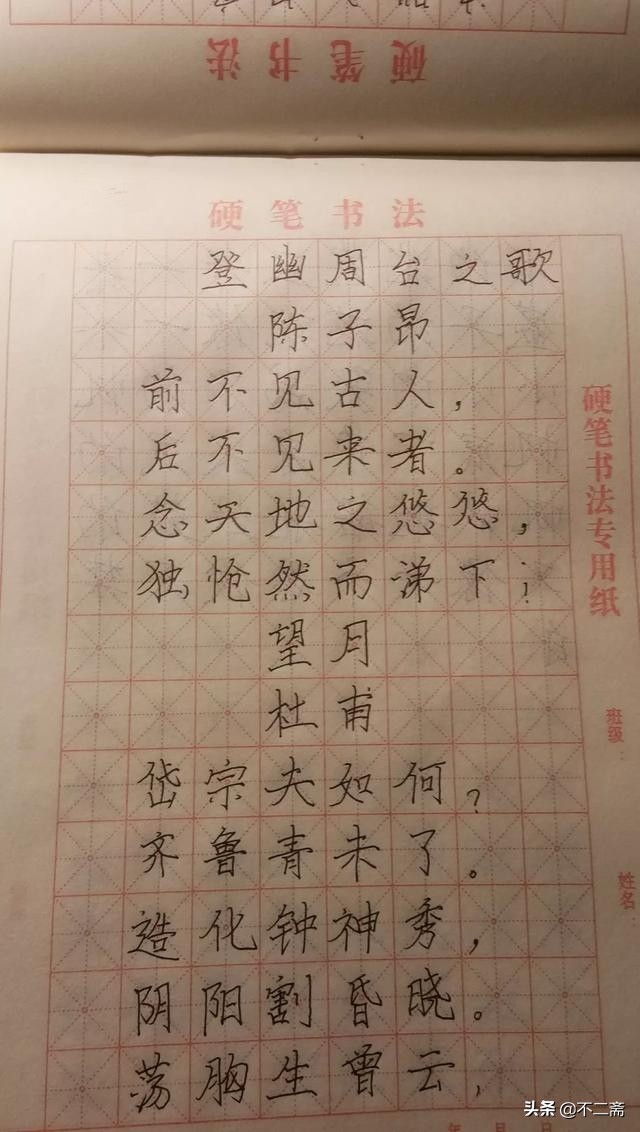 硬笔书法
硬笔书法
登幽周台之歌
陈子昂
前不见古人，
后不见来者。
念天地之悠悠，
独怆然而涕下；
望月
杜甫
岱宗夫如何？
齐鲁青未了。
造化钟神秀，
阴阳割昏晓。
荡胸生曾云，
硬笔书法专用纸
班级：
姓名：
年 月 日
头条 @不二斋